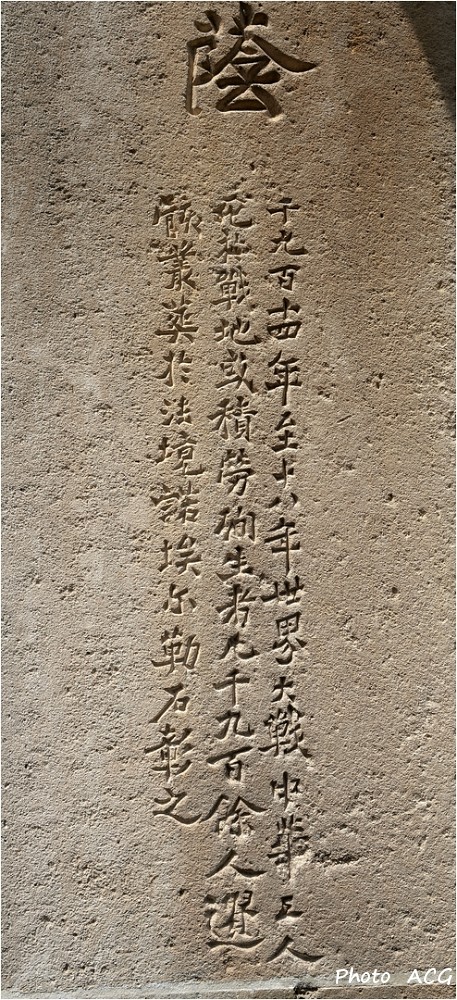 蔭
千九百十四年至十八年世界大戰中華工人
死於戰地或積勞殉生者凡千九百餘人遺
骸叢葬於法境諾埃尔勒石彰之
Photo ACG